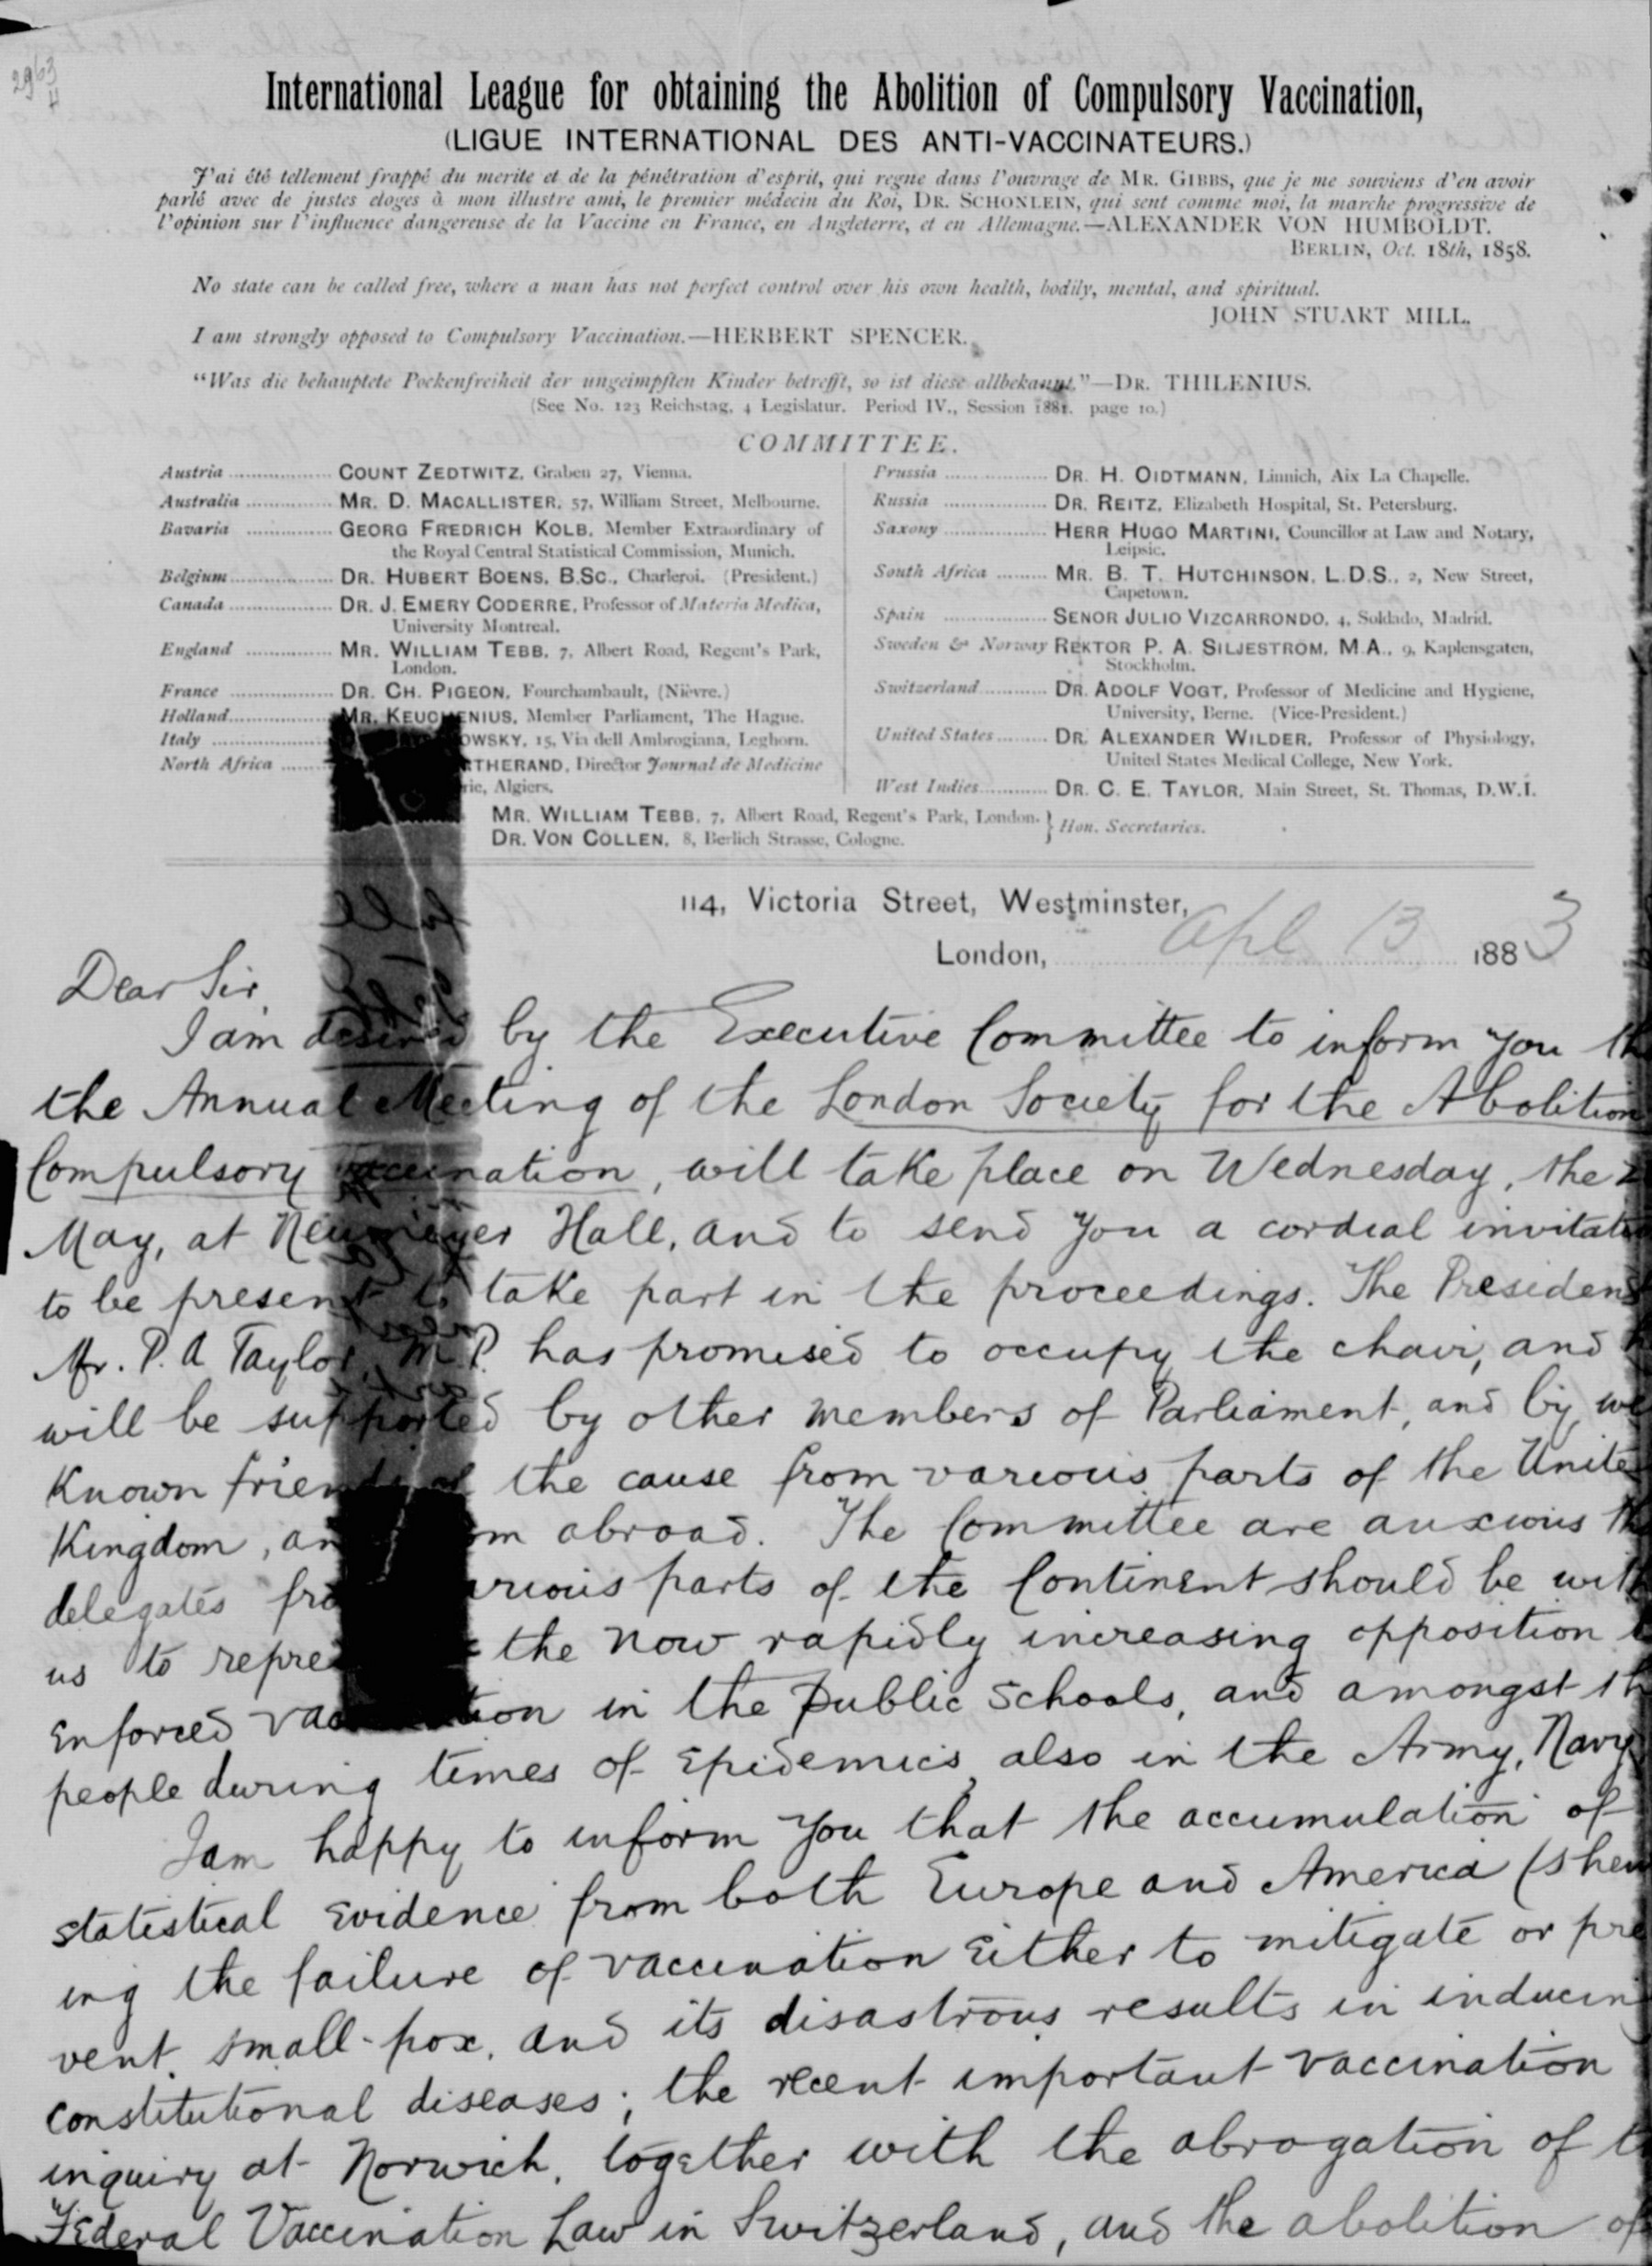 2963
International League for obtaining the Abolition of Compulsory Vaccination,
(LIGUE INTERNATIONAL DES ANTI-VACCINATEURS.)
J'ai été tellement frappé du merite et de la pénétration d'esprit, qui regne dans l'ouvrage de MR. GIBBS, que je me souviens d'en avoir
parlé avec de justes eloges à mon illustre ami, le premier médecin du Roi, DR. SCHONLEIN, qui sent comme moi, la marche progressive de
l'opinion sur l'influence dangereuse de la Vaccine en France, en Angleterre, et en Allemagne.—ALEXANDER VON HUMBOLDT.
BERLIN, Oct. 18th, 1858.
No state can be called free, where a man has not perfect control over his own health, bodily, mental, and spiritual.
JOHN STUART MILL.
I am strongly opposed to Compulsory Vaccination.—HERBERT SPENCER.
"Was die behauptete Pockenfreiheit der ungeimpften Kinder betrefft, so ist diese allbekannt."—DR. THILENIUS.
(See No. 123 Reichstag, 4 Legislatur. Period IV., Session 1881. page 10.)
COMMITTEE.
Austria ........ COUNT ZEDTWITZ, Graben 27, Vienna.
Australia ........ MR. D. MACALLISTER, 57, William Street, Melbourne.
Bavaria ........ GEORG FREDRICH KOLB, Member Extraordinary of
the Royal Central Statistical Commission, Munich.
Belgium ........ DR. HUBERT BOENS, B.SC., Charleroi. (President.)
Canada ........ DR. J. EMERY CODERRE, Professor of Materia Medica,
University Montreal.
England ........ MR. WILLIAM TEBB, 7, Albert Road, Regent's Park,
London.
France ........ DR. CH. PIGEON, Fourchambault, (Nièvre.)
Holland ........ MR. KEUCHENIUS, Member Parliament, The Hague.
Italy ........ OWSKY, 15, Via dell Ambrogiana, Leghorn.
North Africa ........ RTHERAND, Director Journal de Medicine
rie, Algiers.
Prussia ........ DR. H. OIDTMANN, Linnich, Aix La Chapelle.
Russia ........ DR. REITZ, Elizabeth Hospital, St. Petersburg.
Saxony ........ HERR HUGO MARTINI, Councillor at Law and Notary,
Leipsic.
South Africa ........ MR. B. T. HUTCHINSON, L.D.S., 2, New Street,
Capetown.
Spain ........ SENOR JULIO VIZCARRONDO, 4, Soldado, Madrid.
Sweden & Norway REKTOR P. A. SILJESTROM, M.A., 9, Kaplensgaten,
Stockholm.
Switzerland ........ DR. ADOLF VOGT, Professor of Medicine and Hygiene,
University, Berne. (Vice-President.)
United States ........ DR. ALEXANDER WILDER, Professor of Physiology,
United States Medical College, New York.
West Indies ........ DR. C. E. TAYLOR, Main Street, St. Thomas, D.W.I.
MR. WILLIAM TEBB, 7, Albert Road, Regent's Park, London. } Hon. Secretaries.
DR. VON COLLEN, 8, Berlich Strasse, Cologne.
114, Victoria Street, Westminster,
London, Apl 13 1883
Dear Sir
I am desired by the Executive Committee to inform you th
the Annual Meeting of the London Society for the Abolition
Compulsory Vaccination, will take place on Wednesday, the 2
May, at Neumeyer Hall, and to send you a cordial invitati
to be present to take part in the proceedings. The President
Mr. P. A Taylor, M.P. has promised to occupy the chair, and h
will be supported by other members of Parliament, and by we
Known friends of the cause from various parts of the Unite
Kingdom, an om abroad. The Committee are anxious th
delegates fro arious parts of the Continent should be with
us to repre the now rapidly increasing opposition t
Enforced vac tion in the Public Schools, and amongst th
people during times of Epidemics, also in the Army, Navy
I am happy to inform you that the accumulation of
statistical Evidence from both Europe and America (shew
ing the failure of vaccination Either to mitigate or pre
vent small-pox, and its disastrous results in inducin
constitutional diseases; the recent important vaccination
inquiry at Norwich, together with the abrogation of t
Federal Vaccination Law in Switzerland, and the abolition of